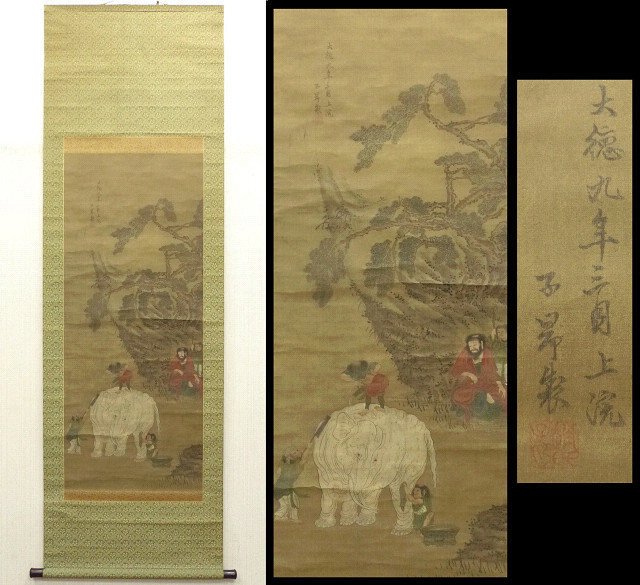 大德九年三月上浣
子昂製